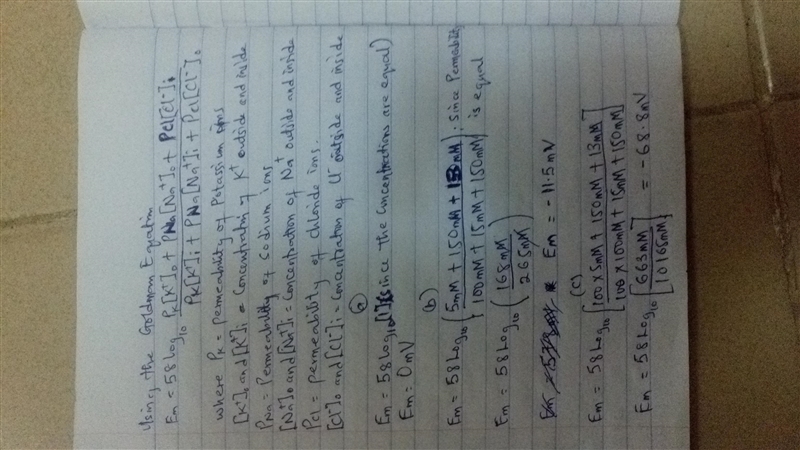 Using the Goldman Equation
Em = 58 Log10 PK[K+]o + PNa[Na+]o + PCl[Cl-]i
PK[K+]i + PNa[Na+]i + PCl[Cl-]o
where PK = permeability of Potassium ions
[K+]o and [K+]i = Concentration of K+ outside and inside
PNa = Permeability of sodium ions
[Na+]o and [Na+]i = Concentration of Na+ outside and inside
PCl = permeability of chloride ions.
[Cl-]o and [Cl-]i = Concentration of Cl- outside and inside
(a)
Em = 58 log10 [1] (since the Concentrations are equal)
Em = 0mV
(b)
Em = 58 Log10 (5mM + 150mM + 13mM / 100mM + 15mM + 150mM) ; since Permeability is equal
Em = 58 Log10 (168mM / 265mM)
Em = -11.5mV
(c)
Em = 58 Log10 [100 x 5mM + 150mM + 13mM / 100 x 100mM + 15mM + 150mM]
Em = 58 Log10 [663mM / 10165mM] = -68.8mV